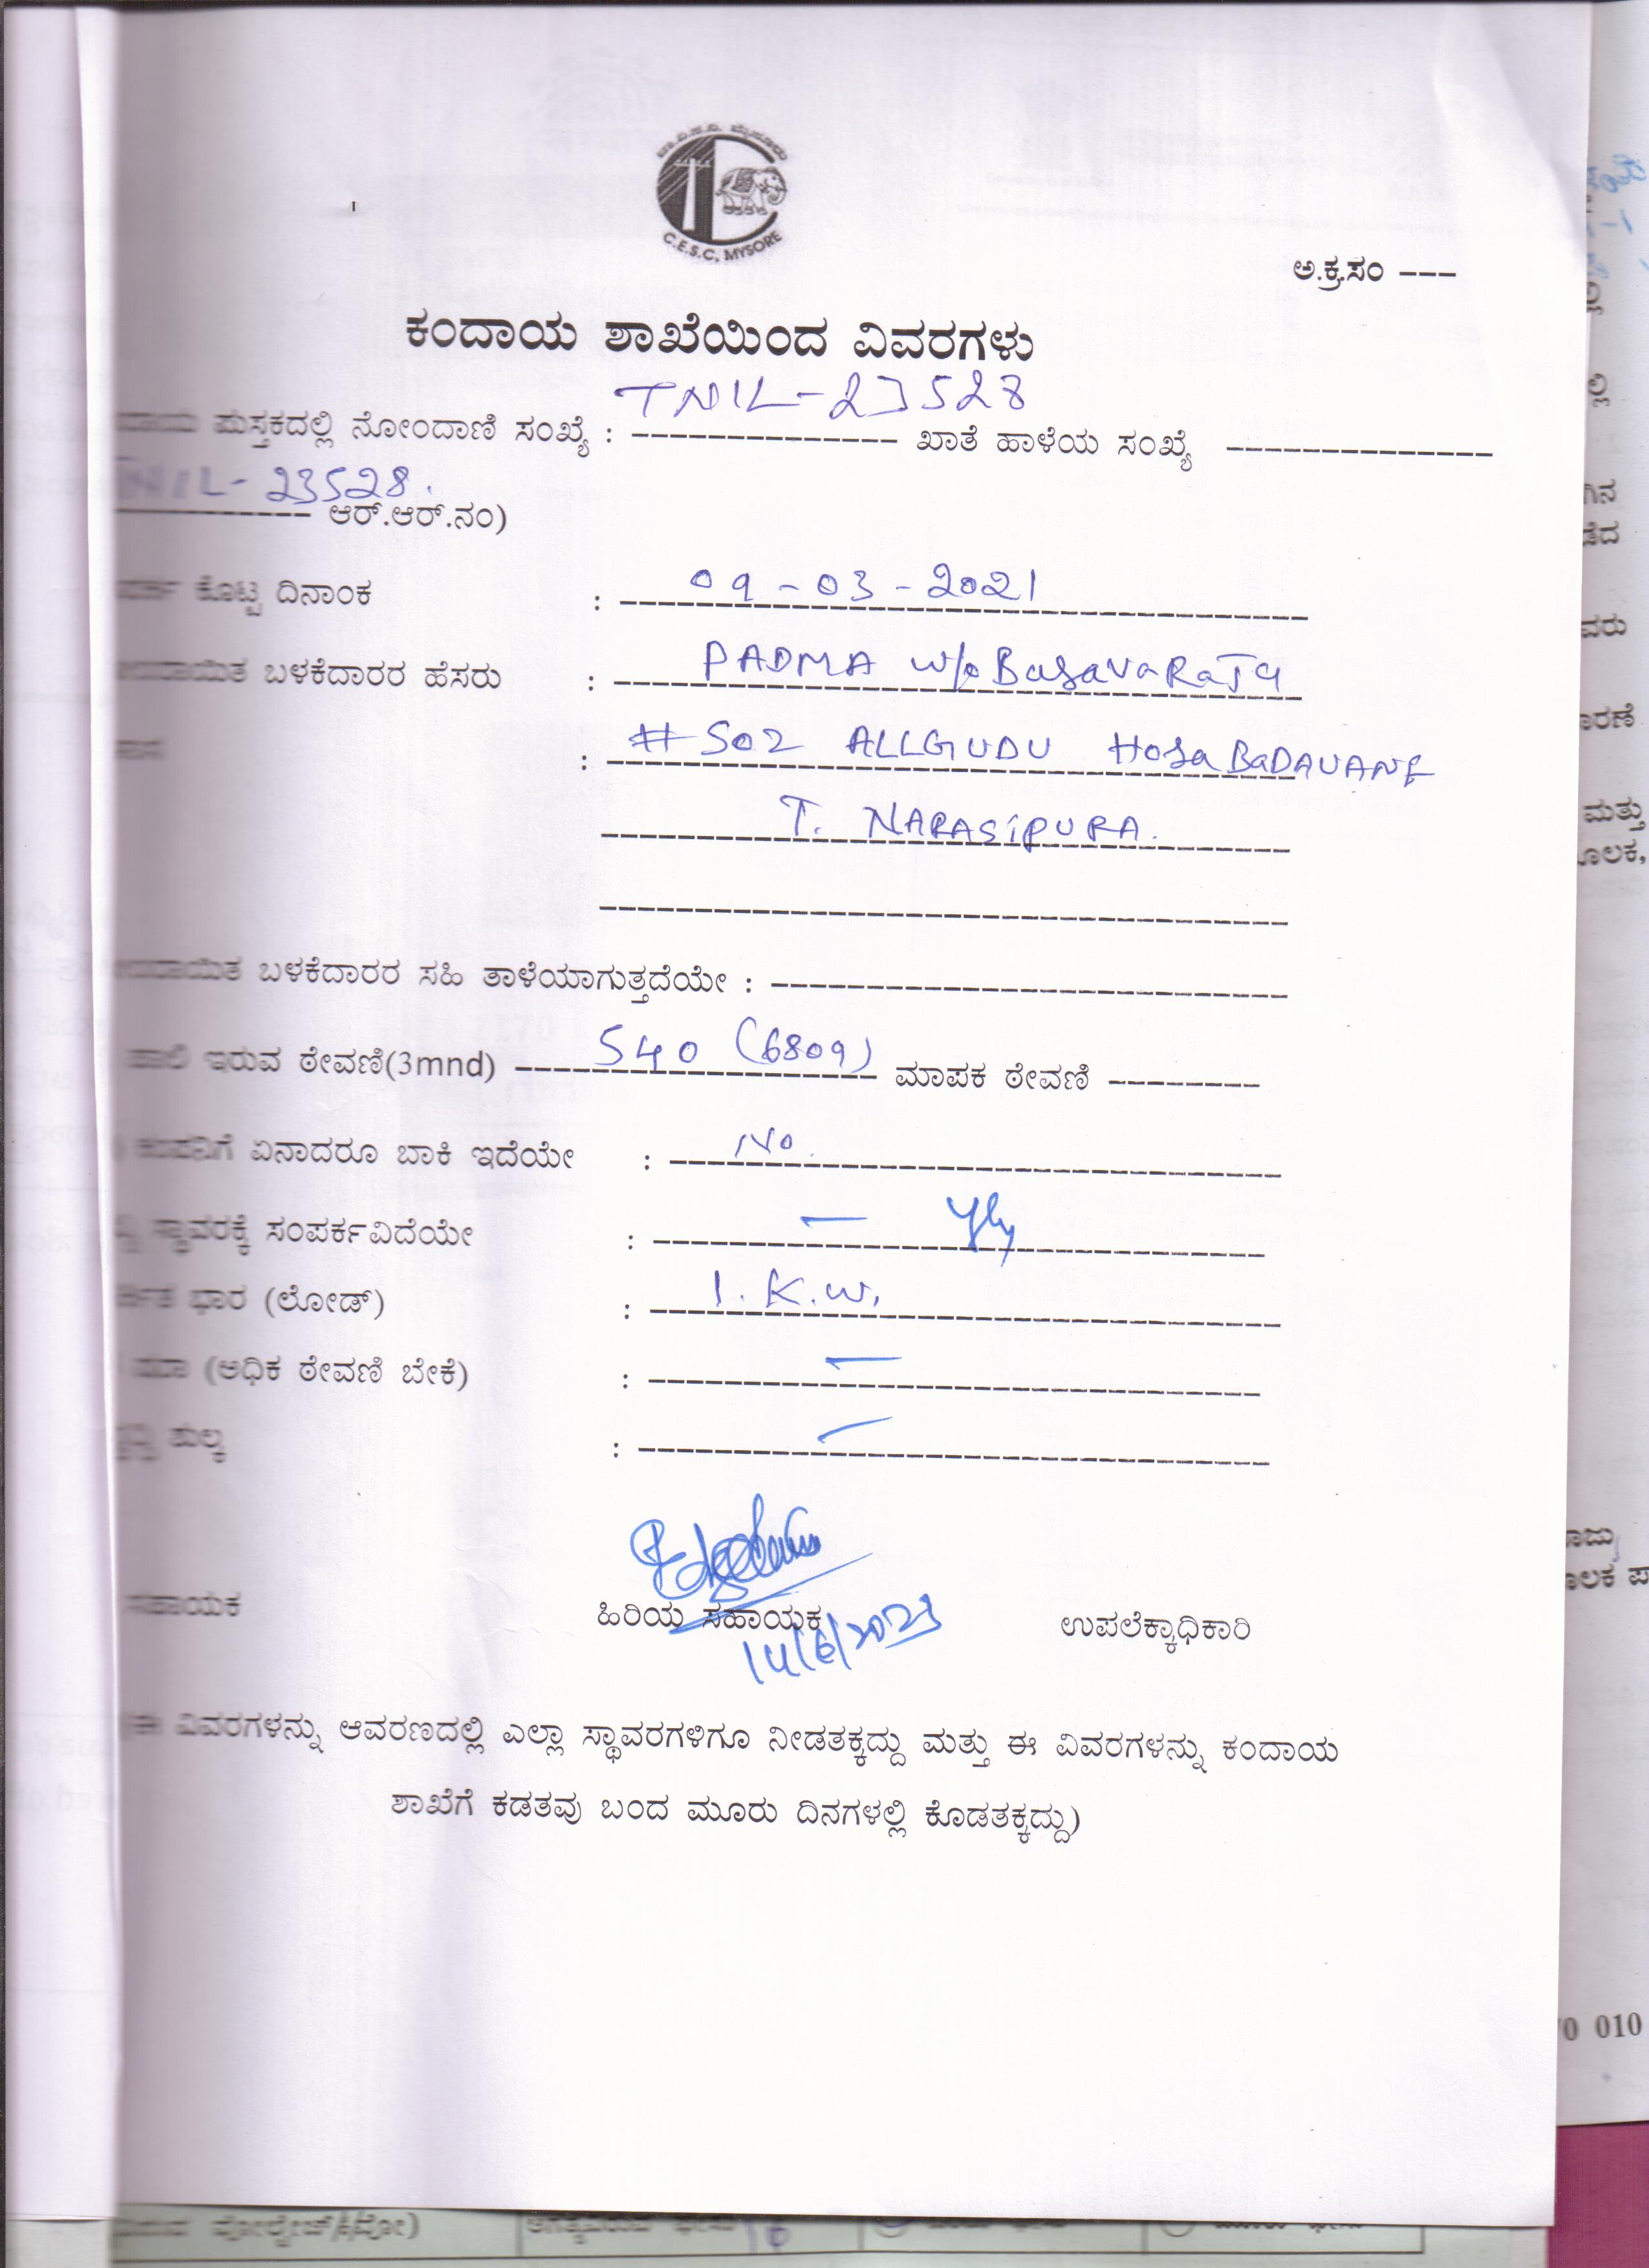 ಚಾ.ವಿ.ಸ.ನಿ. ಮೈಸೂರು
C.E.S.C, MYSORE
ಅ.ಕ್ರ.ಸಂ ---
ಕಂದಾಯ ಶಾಖೆಯಿಂದ ವಿವರಗಳು
TNIL-23528
ದಾಯ ಪುಸ್ತಕದಲ್ಲಿ ನೋಂದಾಣಿ ಸಂಖ್ಯೆ : -------------- ಖಾತೆ ಹಾಳೆಯ ಸಂಖ್ಯೆ --------------
NIL-23528.
---------- ಆರ್.ಆರ್.ನಂ)
ಕೊಟ್ಟ ದಿನಾಂಕ : 09-03-2021
ದಾಯಿತ ಬಳಕೆದಾರರ ಹೆಸರು : PADMA w/o BasavaRaJu
: # 502 ALLGUDU HosaBaDAVANE
T. NARASIPURA.
ದಾಯಿತ ಬಳಕೆದಾರರ ಸಹಿ ತಾಳೆಯಾಗುತ್ತದೆಯೇ :
ಹಾಲಿ ಇರುವ ಠೇವಣಿ(3mnd) 540 (6809) ಮಾಪಕ ಠೇವಣಿ --------
ಏನಾದರೂ ಬಾಕಿ ಇದೆಯೇ : No.
ಸ್ಥಾವರಕ್ಕೆ ಸಂಪರ್ಕವಿದೆಯೇ : —
ಭಾರ (ಲೋಡ್) : 1. K.W.
(ಅಧಿಕ ಠೇವಣಿ ಬೇಕೆ) : —
ಶುಲ್ಕ : —
ಸಹಾಯಕ ಹಿರಿಯ ಸಹಾಯಕ ಉಪಲೆಕ್ಕಾಧಿಕಾರಿ
14/6/2023
(ಈ ವಿವರಗಳನ್ನು ಆವರಣದಲ್ಲಿ ಎಲ್ಲಾ ಸ್ಥಾವರಗಳಿಗೂ ನೀಡತಕ್ಕದ್ದು ಮತ್ತು ಈ ವಿವರಗಳನ್ನು ಕಂದಾಯ
ಶಾಖೆಗೆ ಕಡತವು ಬಂದ ಮೂರು ದಿನಗಳಲ್ಲಿ ಕೊಡತಕ್ಕದ್ದು)
ವರು
ಮತ್ತು
0 010